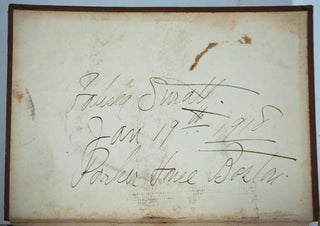 Valeska Suratt.
Jan 19th 1918
Parker House Boston.